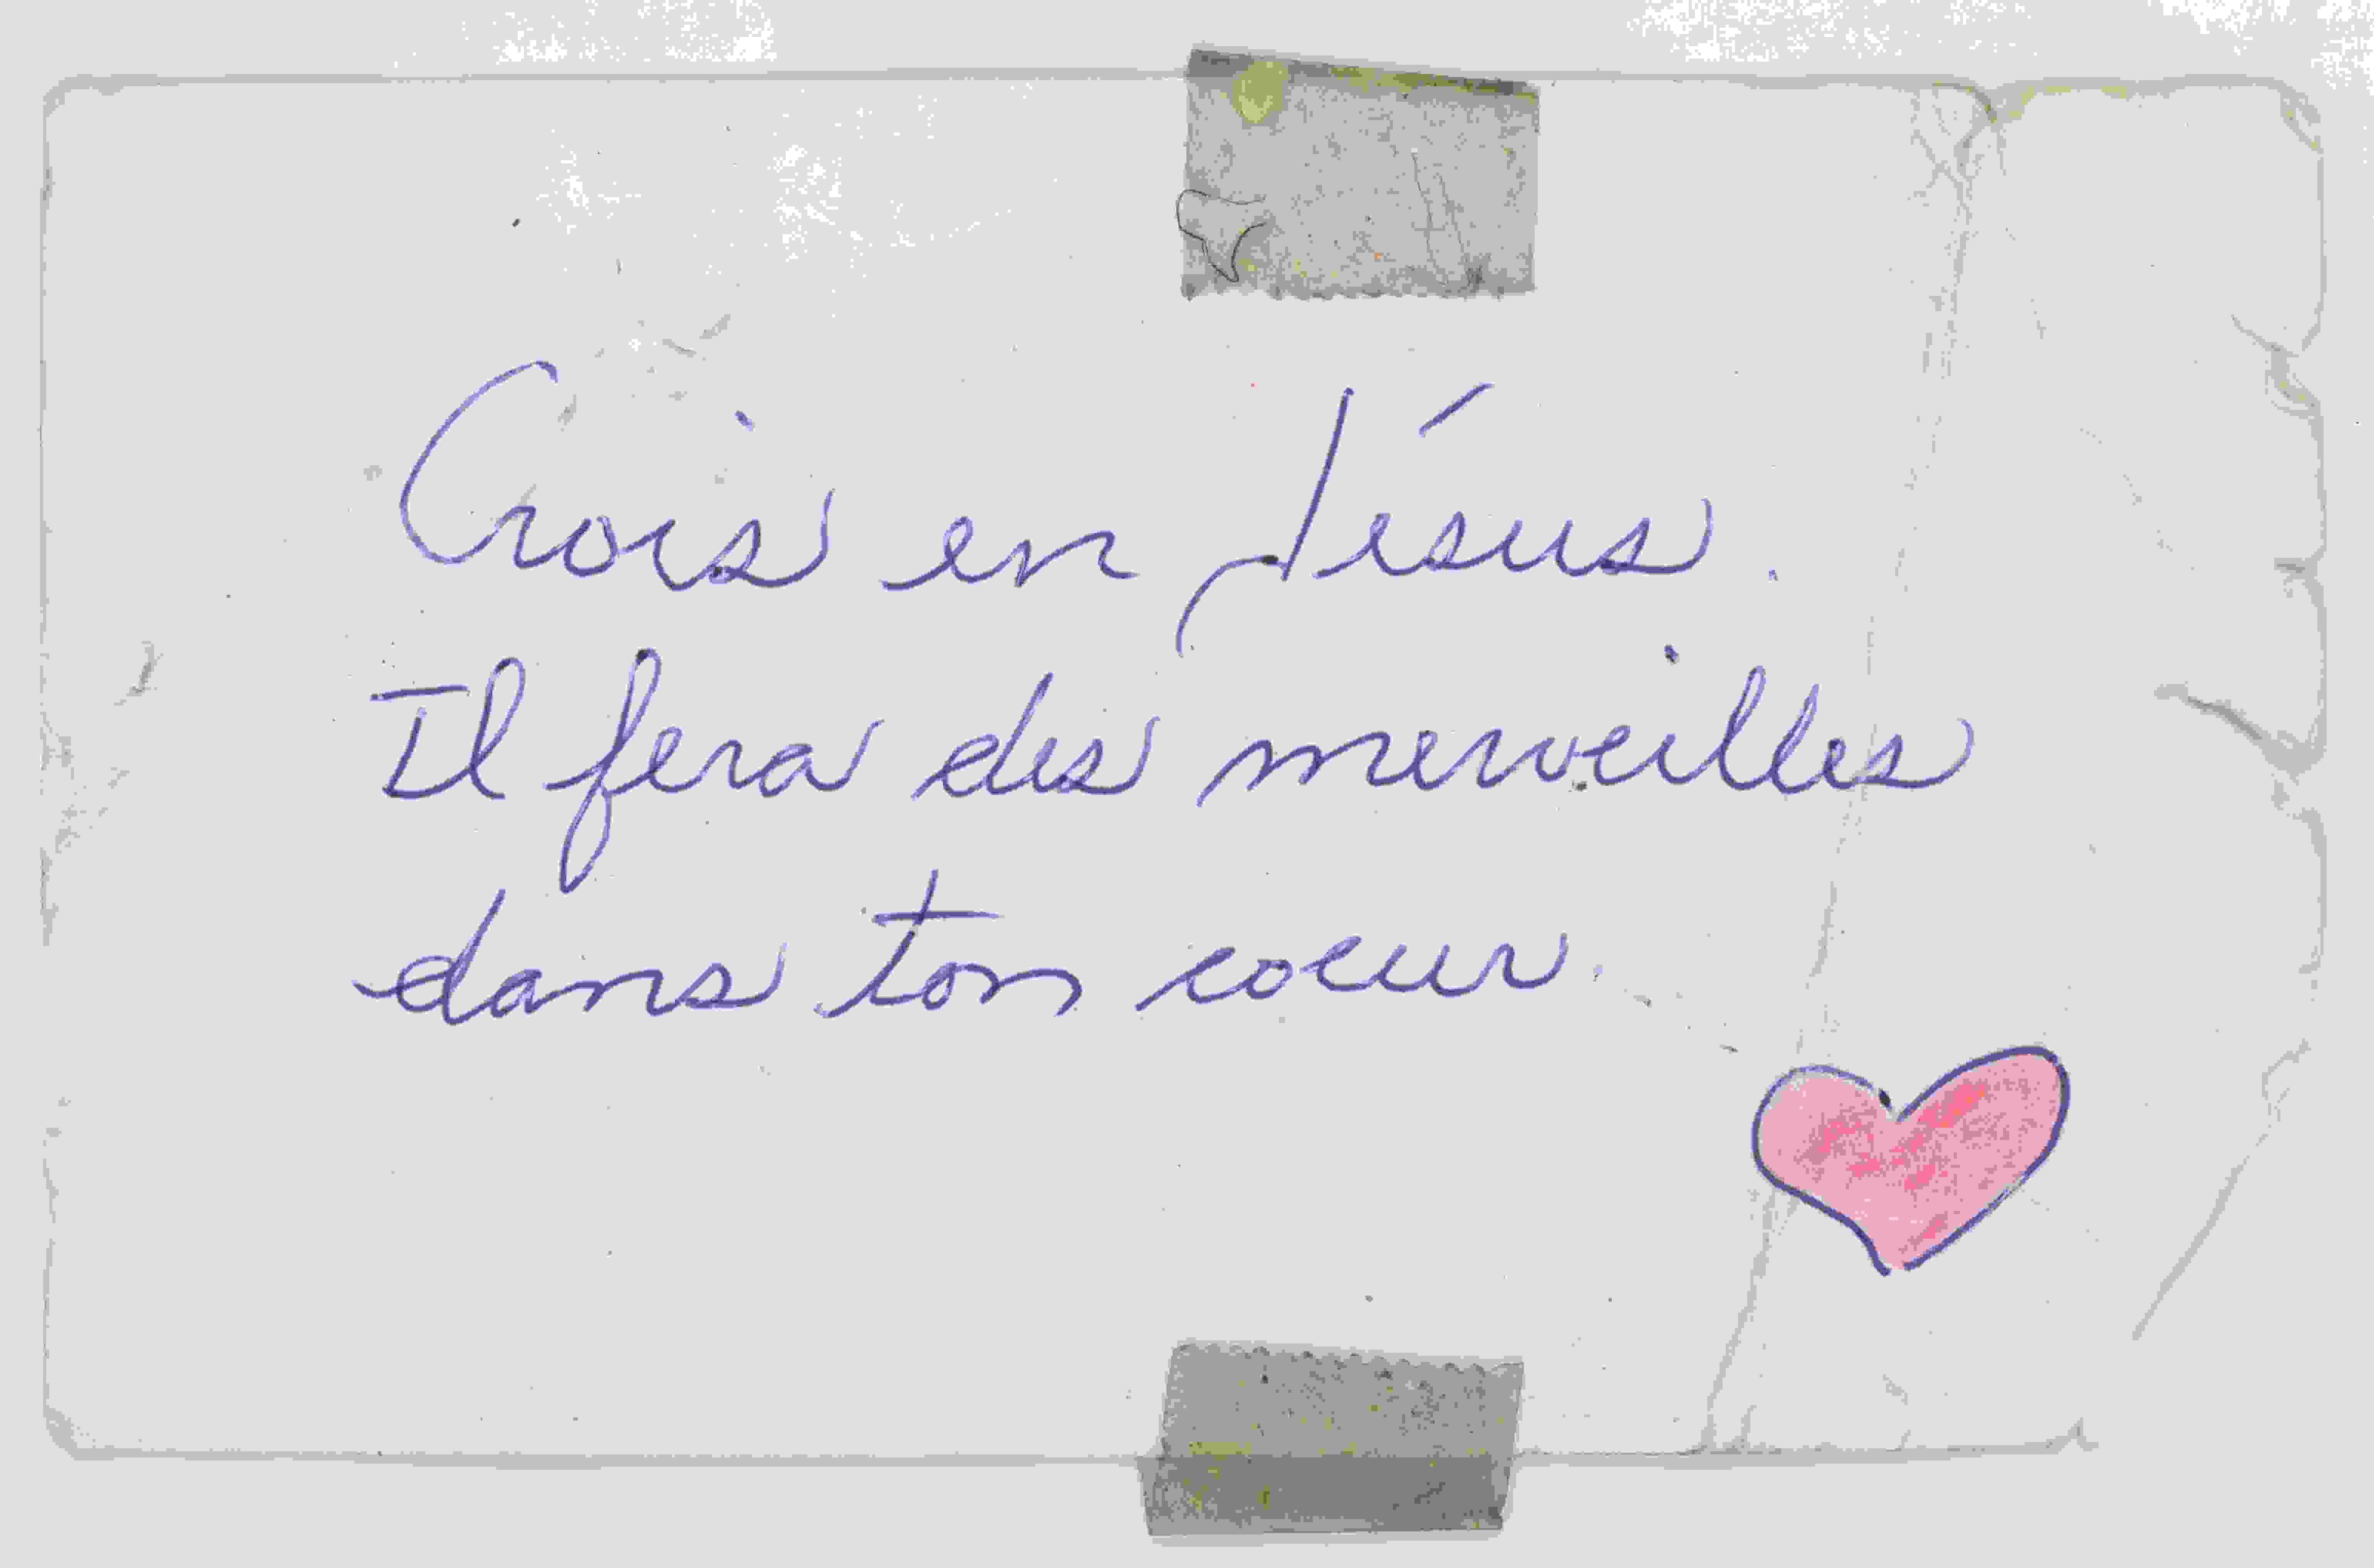 Crois en Jésus.
Il fera des merveilles
dans ton coeur.